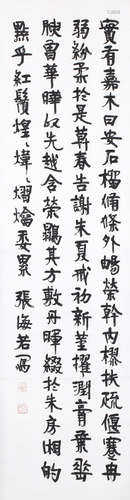 實有嘉木曰安石榴脩條外暢榮幹內樛扶疏偃蹇冉
弱紛柔於是暮春告謝朱夏戒初新莖擢潤膏葉垂
腴曾華曄以先越含榮鶠其方敷丹暉綴於朱房緗的
點乎紅鬚煌々煒々熠爚委累 張海若寫